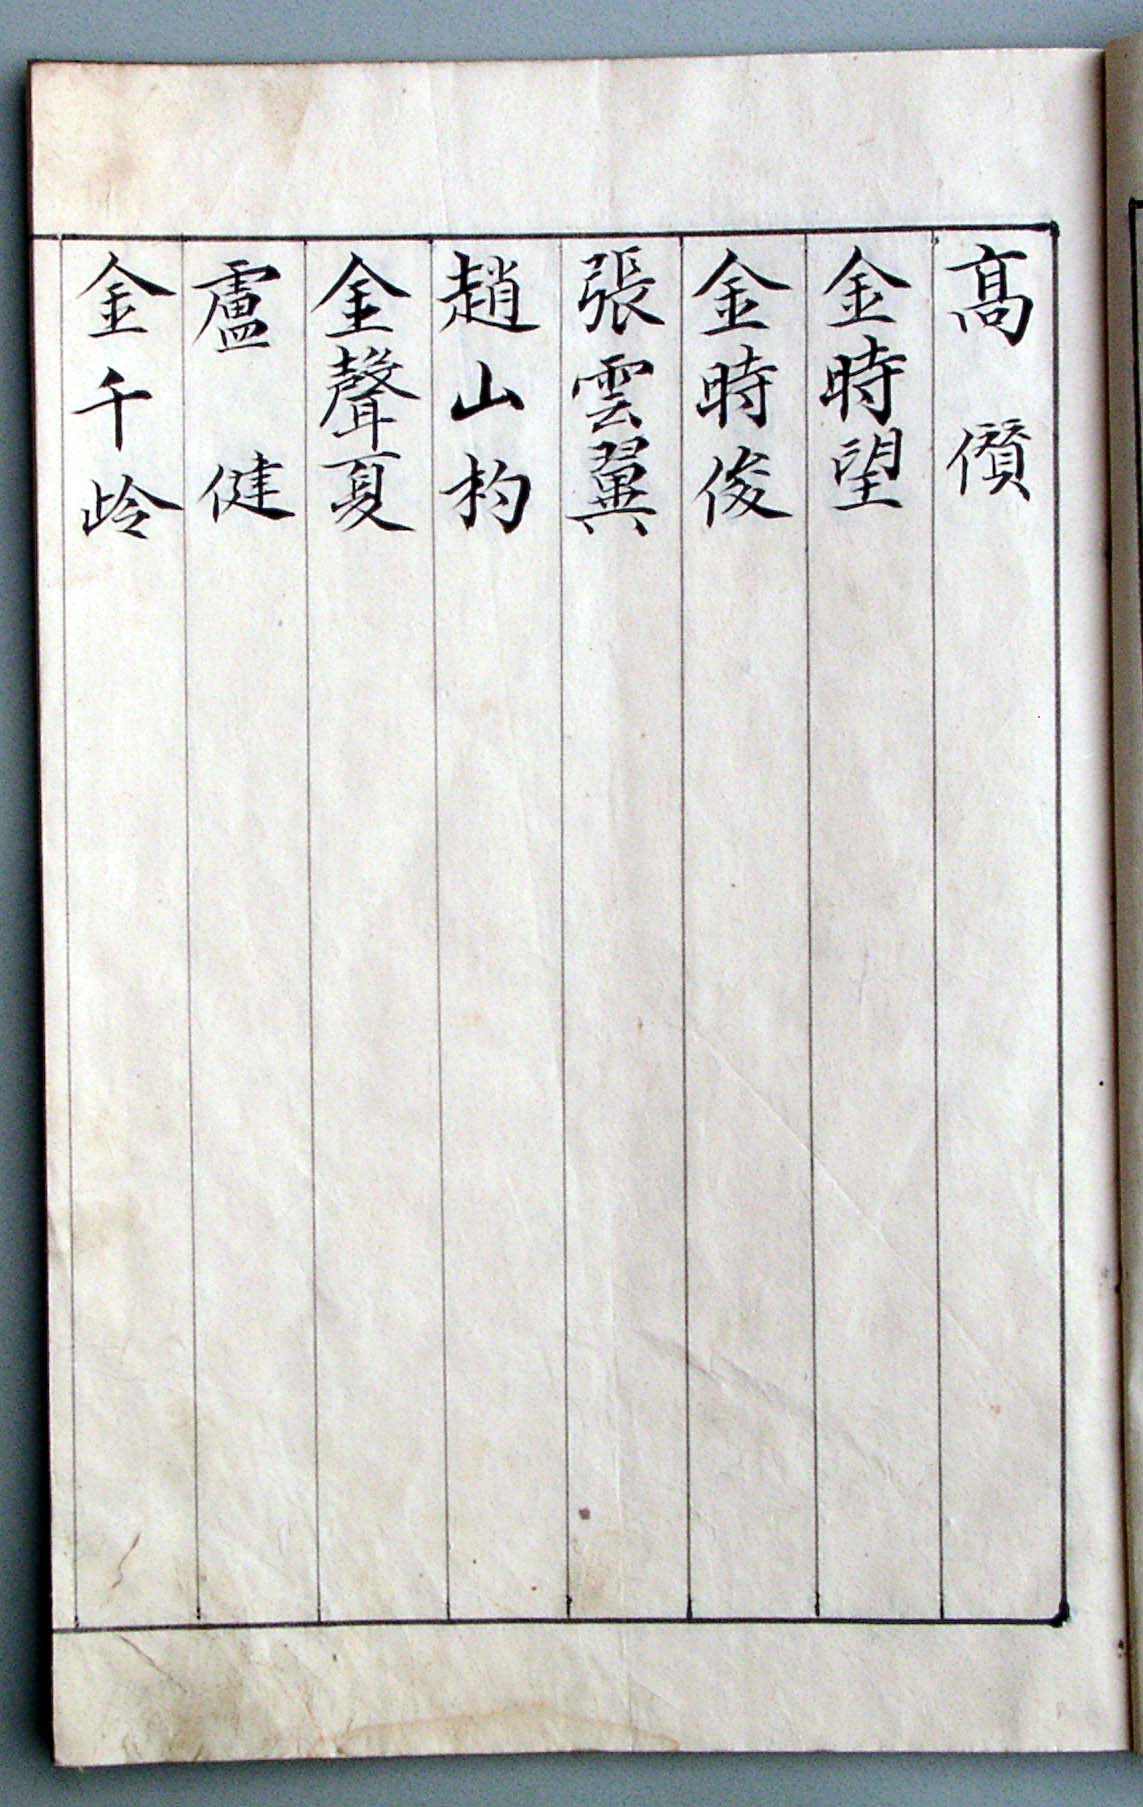 髙儧
金時望
金時俊
張雲翼
趙山杓
金聲夏
盧健
金千岭